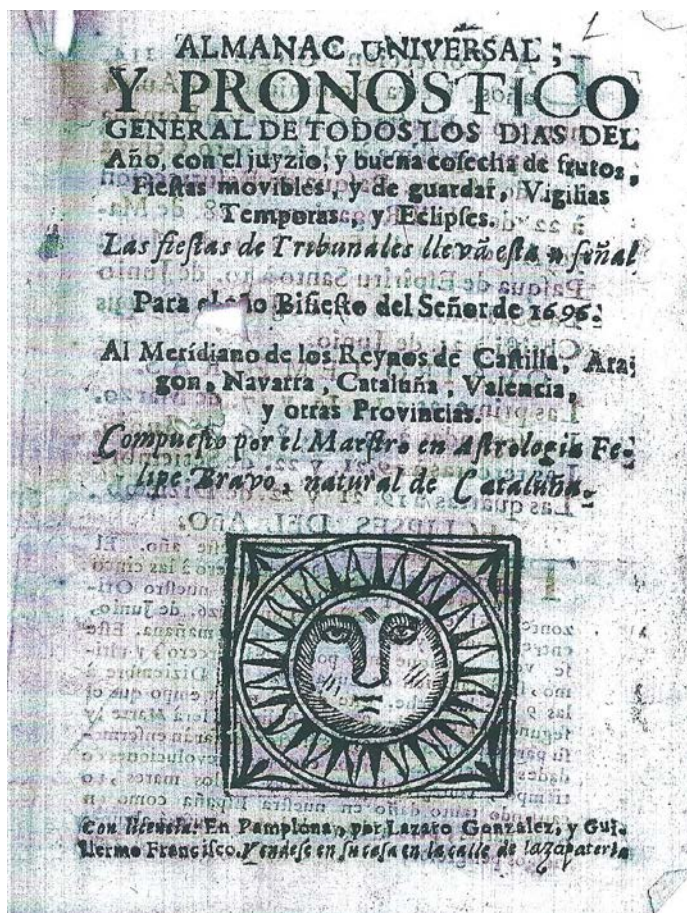 ALMANAC UNIVERSAL;
Y PRONOSTICO
GENERAL DE TODOS LOS DIAS DEL
Año, con el juyzio, y buena coſecha de frutos,
Fieſtas movibles, y de guardar, Vigilias
Temporas, y Eclipſes.
Las fieſtas de Tribunales llevã eſta ñ ſeñal
Para el año Biſieſto del Señor de 1696.
Al Meridiano de los Reynos de Caſtilla, Ara-
gon, Navarra, Cataluña, Valencia,
y otras Provincias.
Compueſto por el Maeſtro en Aſtrologia Fe-
lipe Bravo, natural de Cataluña.
Con licencia: En Pamplona, por Lazaro Gonzalez, y Gui-
llermo Franciſco. Vendeſe en ſu caſa en la calle de la Zapateria